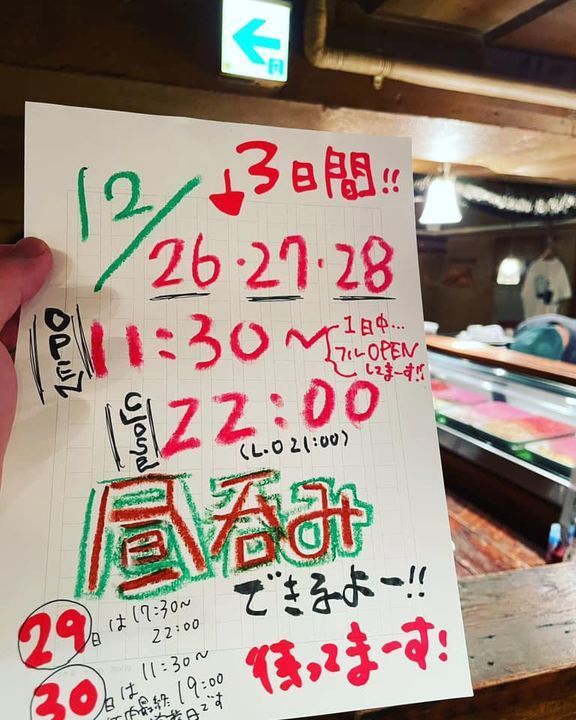 12/
↓3日間!!
26・27・28
OPEN
11:30〜
1日中...
フルOPEN
してまーす!!
CLOSE
22:00
(L.O 21:00)
昼呑み
できるよー!!
29日は17:30〜
22:00
待ってまーす!
30日は11:30〜
19:00
最終営業日です